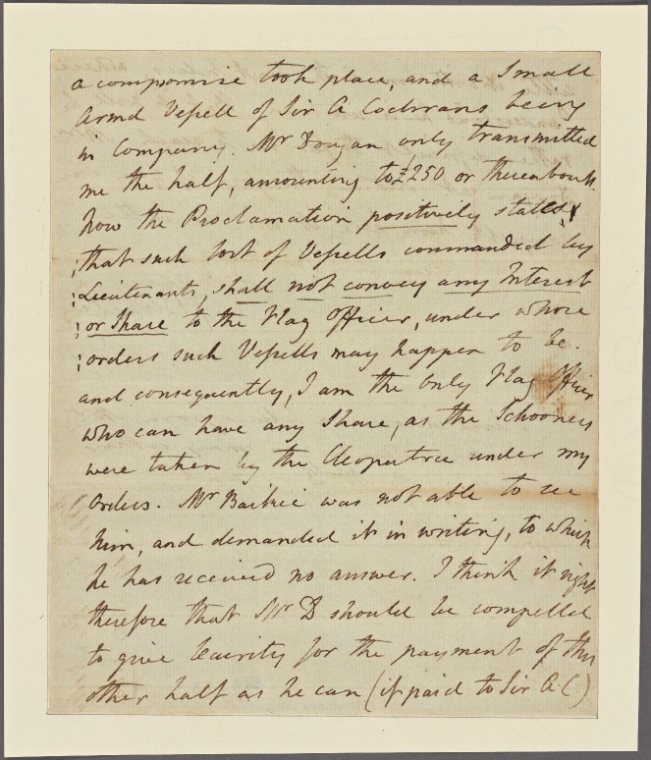 a compromise took place, and a Small
Armd Vessell of Sir A Cochrans being
in Company. Mr Dougan only transmitted
me the half, amounting to £250 or thereabouts.
how the Proclamation positively states
that such sort of Vessells commanded by
Lieutenants, shall not convey any Interest
or Share to the Flag Officer, under whose
orders such Vessells may happen to be.
and consequently, I am the only Flag Officer
who can have any Share, as the Schooners
were taken by the Cleopatra under my
Orders. Mr Baikie was not able to see
him, and demanded it in writing, to which
he has received no answer. I think it right
therefore that Mr D should be compelled
to give Security for the payment of this
other half as he can (if paid to Sir A. C)